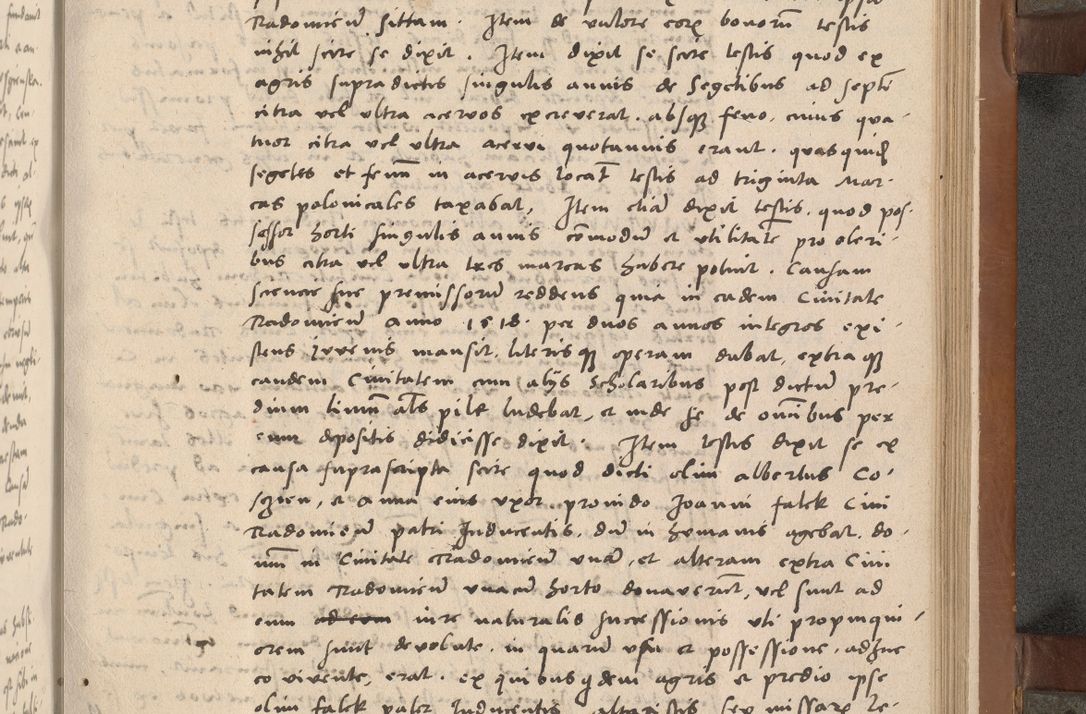 Radomien̄ sittam. Item de valore eorꝝ bonorum̄ testis
nihil scire se dixit. Item dixit se scire testis quod ex
agris supradictis singulis annis de segetibus ad septē
citra vel ultra acervos excreverat. absqꝫ feno. cuius qua-
tuor citra vel ultra acervi quotannis erant. quasquidē
segetes et fenum̄ in acervis locat̄ testis ad triginta mar-
cas polonicales taxabat, Item etiā dixit testis. quod pos-
sessor horti singulis annis cōmodū et utilitatē pro oleri-
bus citra vel ultra tres marcas habere potuit. Causam
sciencie sue premissorū reddens quia in eadem Civitate
Radomien̄ anno 1518 per duos annos integros exi-
stens iuvenis mansit, literisqꝫ operam dabat, extraqꝫ
eandem Civitatem cum alijs scholaribus post dictū pre-
dium limm̄ al̄s pilk ludebat, et inde se de om̄ibus per
eum depositis didicisse dixit. Item testis dixit se ex
causa suprascripta scire quod dicti olim albertus Co-
et anna eius uxor provido Joanni falek Civi
Radomien̄ patri Inducentis, dū in humanis agebat. do-
mum̄ in Civitate Radomien̄ unā, et alteram extra Civi
tatem Radomien̄ unacū horto donaverūt, vel sunt ad
eum ad eum iure naturalis successionis uti propinqui-
orem sunt devolute. in quarū usu et possessione. adhuc
eo vivente, erat. ex quibusquidem agris et predio ipse
olim falek pater Inducentis altaristis sex missarꝝ le-